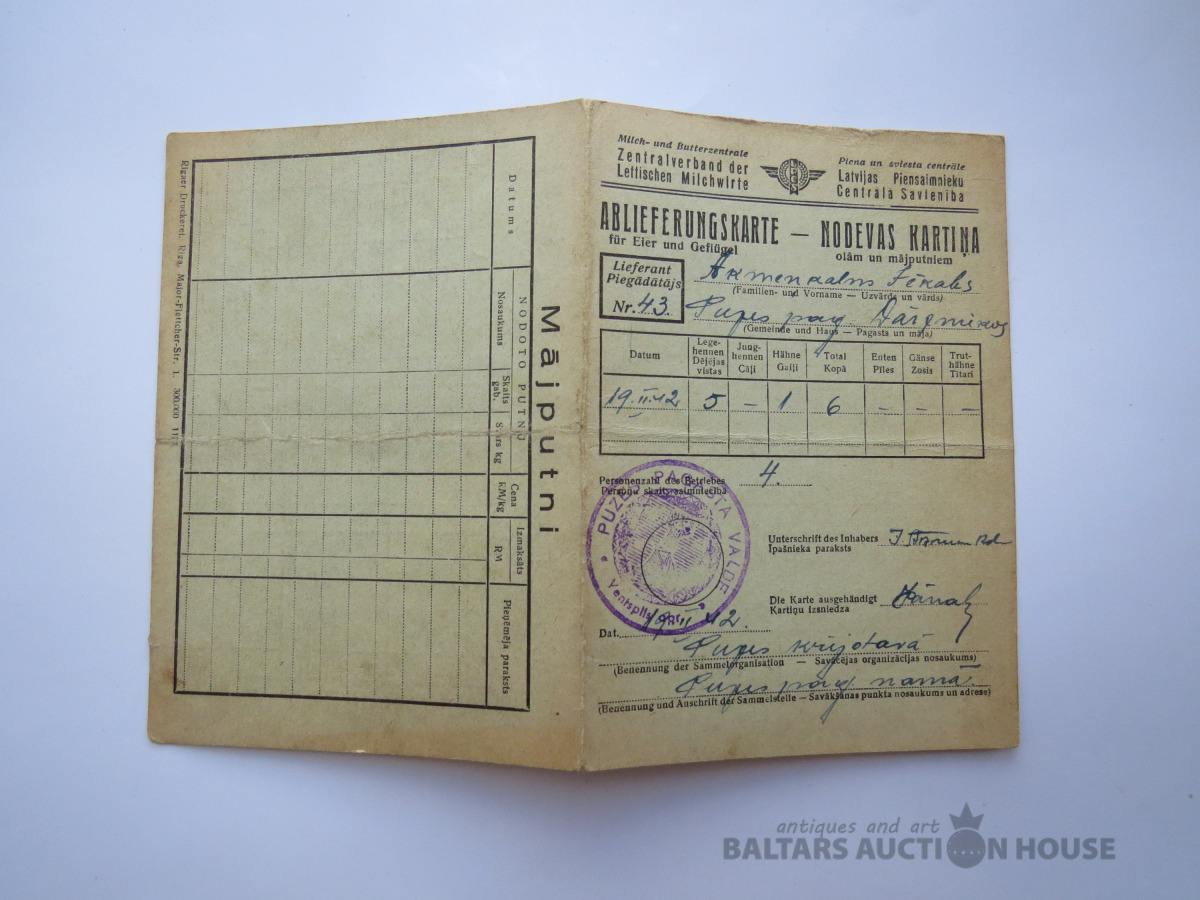 Rigaer Druckerei, Riga, Major-Plettcher-Str. 1. 300,000
Mājputni
Datums
NODOTO PUTNU
Nosaukums
Skaits gab.
Svars kg
Cena RM/kg
Izmaksāts RM
Pieņēmēja paraksts
Milch- und Butterzentrale
Zentralverband der
Lettischen Milchwirte
Piena un sviesta centrāle
Latvijas Piensaimnieku
Centrālā Savienība
ABLIEFERUNGSKARTE — NODEVAS KARTIŅA
für Eier und Geflügel
olām un mājputniem
Lieferant
Piegādātājs
Nr. 43.
Akmenkalns Jēkabs
(Familien- und Vorname — Uzvārds un vārds)
Puzes pag.
(Gemeinde und Haus — Pagasts un māja)
Datum
Legehennen Dējējas vistas
Junghennen Cāļi
Hähne Gaiļi
Total Kopā
Enten Pīles
Gänse Zosis
Truthähne Tītari
19.II.42 5 – 1 6 – – –
Personenzahl des Betriebes 4.
Personu skaits saimniecībā
PUZES PAGASTA VALDE
Ventspils apr.
Unterschrift des Inhabers
Īpašnieka paraksts
Die Karte ausgehändigt
Kartiņu izsniedza
Dat. 19.II.42.
Puzes krējotavā
(Benennung der Sammelorganisation — Savācējas organizācijas nosaukums)
Puzes pag. namā.
(Benennung und Anschrift der Sammelstelle — Savākšanas punkta nosaukums un adrese)
antiques and art
BALTARS AUCTION HOUSE